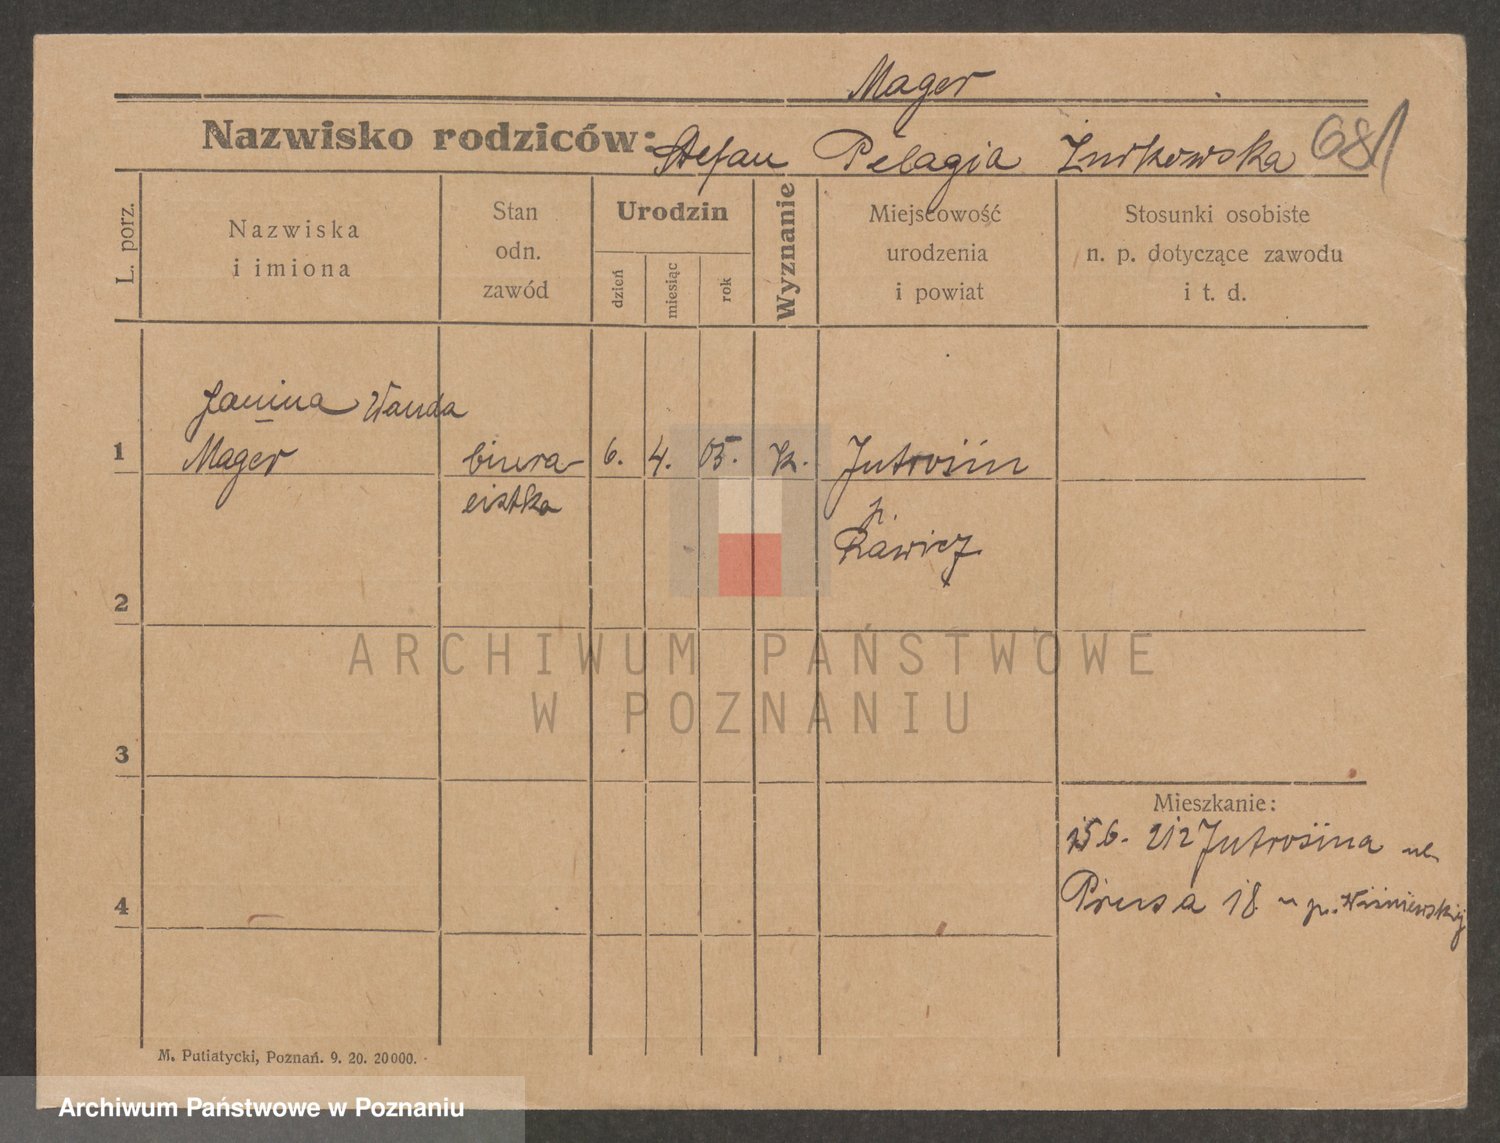 Mager
Nazwisko rodziców: Stefan Pelagia Żurkowska 681
L. porz.
Nazwiska
i imiona
Stan
odn.
zawód
Urodzin
dzień
miesiąc
rok
Wyznanie
Miejscowość
urodzenia
i powiat
Stosunki osobiste
n. p. dotyczące zawodu
i t. d.
Janina Wanda
1 Mager biura- 6. 4. 05. k. Jutrosin
cistka p.
Rawicz
2
ARCHIWUM PAŃSTWOWE
W POZNANIU
3
Mieszkanie:
15 6. 212 Jutrosina ul.
4 Prusa 18 u p. Wiśniewskiej
M. Putiatycki, Poznań. 9. 20. 20000.
Archiwum Państwowe w Poznaniu